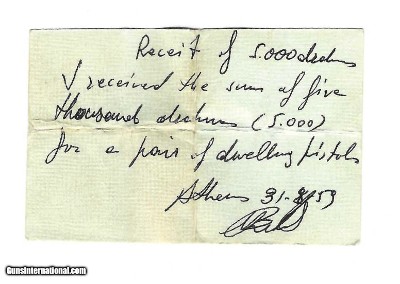 Receit of 5.000 drachms
I received the sum of five
thousand drachms (5.000)
for a pair of dwelling pistols
Athens 31-8/59
GunsInternational.com